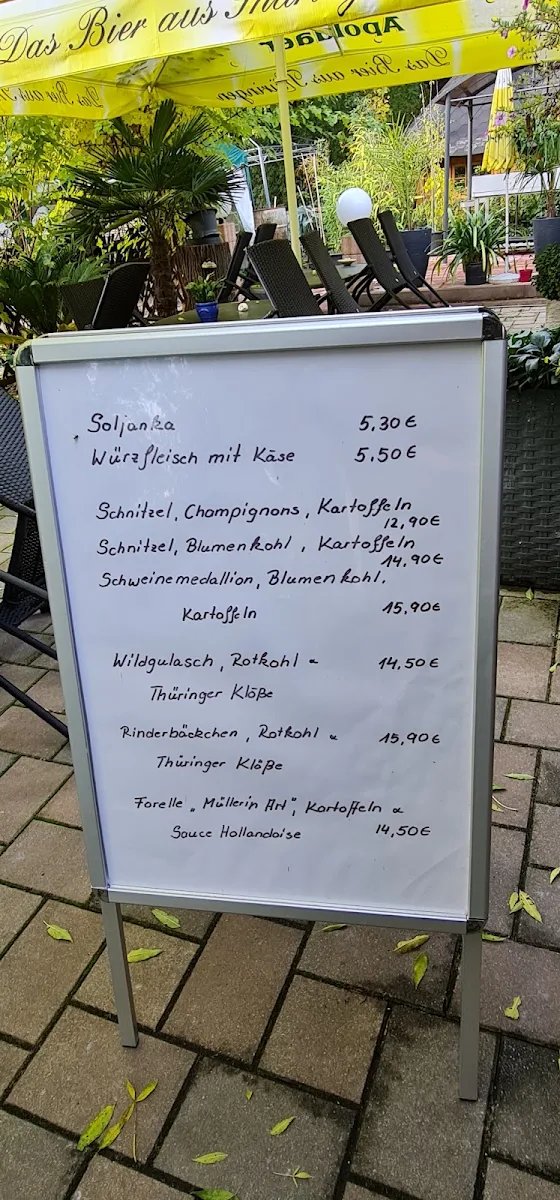 Das Bier aus Thüringen
Apoldaer
Das Bier aus Thüringen
Soljanka 5,30€
Würzfleisch mit Käse 5.50€
Schnitzel, Champignons, Kartoffeln
12,90€
Schnitzel, Blumenkohl, Kartoffeln
14,90€
Schweinemedallion, Blumenkohl,
Kartoffeln 15,90€
Wildgulasch, Rotkohl & 14,50€
Thüringer Klöße
Rinderbäckchen, Rotkohl & 15,90€
Thüringer Klöße
Forelle „Müllerin Art", Kartoffeln &
Sauce Hollandaise 14,50€